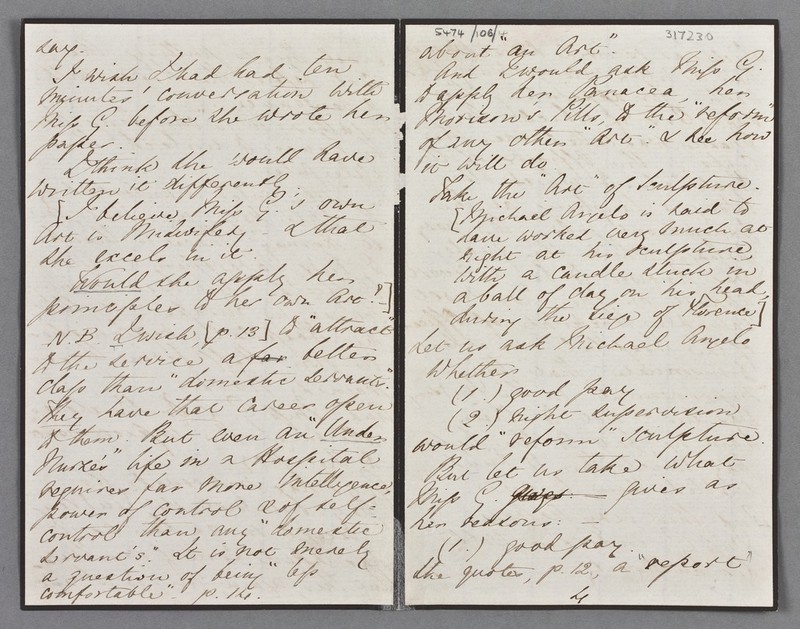 say.
I wish I had had ten
minutes' conversation with
Miss G. before she wrote her
paper.
I think she would have
written it differently.
[I believe Miss G.'s own
Art is Midwifery - & that
she excels in it.
Would she apply her
principles to her own Art?]
N.B. I wish [p. 13] to "attract"
to the service a far better
class than "domestic servants".
They have that career open
to them. But even an "Under
Nurse's" life in a Hospital
requires far more intelligence,
power of control & of self-
control than any "domestic
servant's". It is not merely
a question of being "less
comfortable" - p. 14.
5474/106/4
317230
about "an Art".
And I would ask Miss G.
to apply her Panacea, her
Morison's Pills, to the "reform"
of any other "Art" & see how
it will do
Take the "Art" of Sculpture.
[Michael Angelo is said to
have worked very much at
night at his sculpture,
with a candle stuck in
a ball of clay on his head,
during the siege of Florence]
Let us ask Michael Angelo
whether
(1.) good pay
(2.) night supervision
would "reform" Sculpture.
But let us take what
Miss G. gives as
her reasons: -
(1.) good pay.
She quotes, p. 12, a "report"